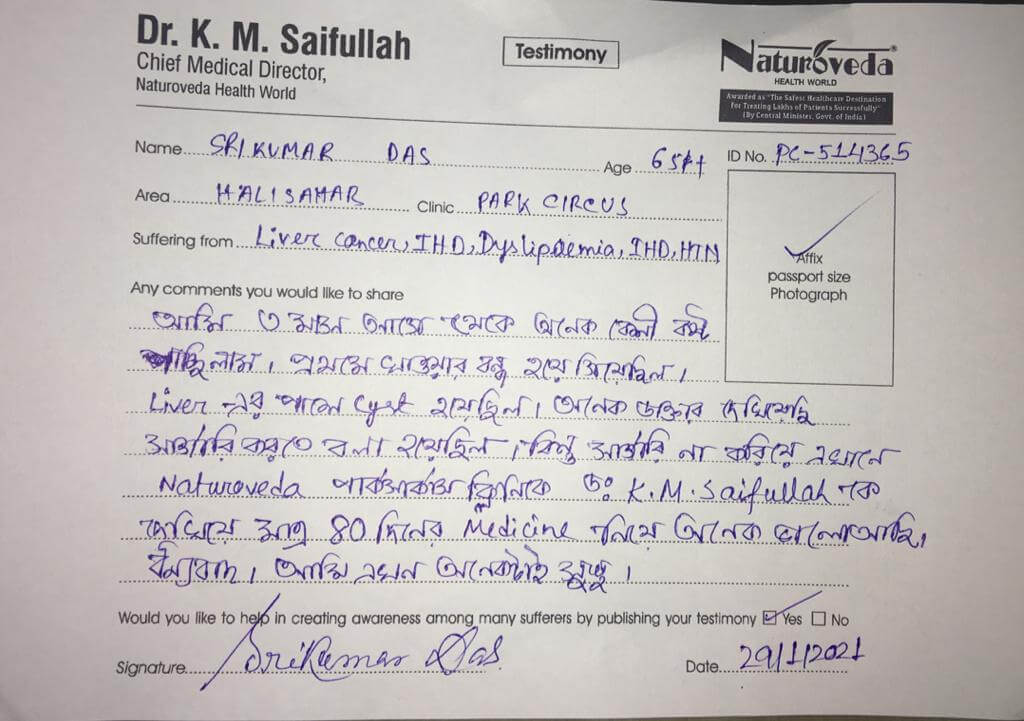 Dr. K. M. Saifullah
Chief Medical Director,
Naturoveda Health World
Testimony
Naturoveda®
HEALTH WORLD
Awarded as "The Safest Healthcare Destination
For Treating Lakhs of Patients Successfully"
(By Central Minister, Govt. of India)
Name SRIKUMAR DAS Age 65++ ID No. PC-514365
Area HALISAHAR Clinic PARK CIRCUS
Suffering from Liver cancer, IHD, Dyslipdemia, IHD, HTN
Affix
passport size
Photograph
Any comments you would like to share
আমি ৩ মাস আগে থেকে অনেক বেশী কষ্ট
পাচ্ছিলাম। প্রথমে খাওয়ার বন্ধ হয়ে গিয়েছিল।
Liver এর পাশে Cyst হয়েছিল। অনেক ডাক্তার দেখিয়েছি
সার্জারি করতে বলা হয়েছিল। কিন্তু সার্জারি না করিয়ে এখানে
Naturoveda পার্কসার্কাস ক্লিনিকে ডঃ K.M.Saifullah কে
দেখিয়ে মাত্র 40 দিনের Medicine নিয়ে অনেক ভালো আছি,
ধন্যবাদ। আমি এখন অনেকটাই সুস্থ।
Would you like to help in creating awareness among many sufferers by publishing your testimony Yes No
Signature Srikumar Das Date 29/1/2021